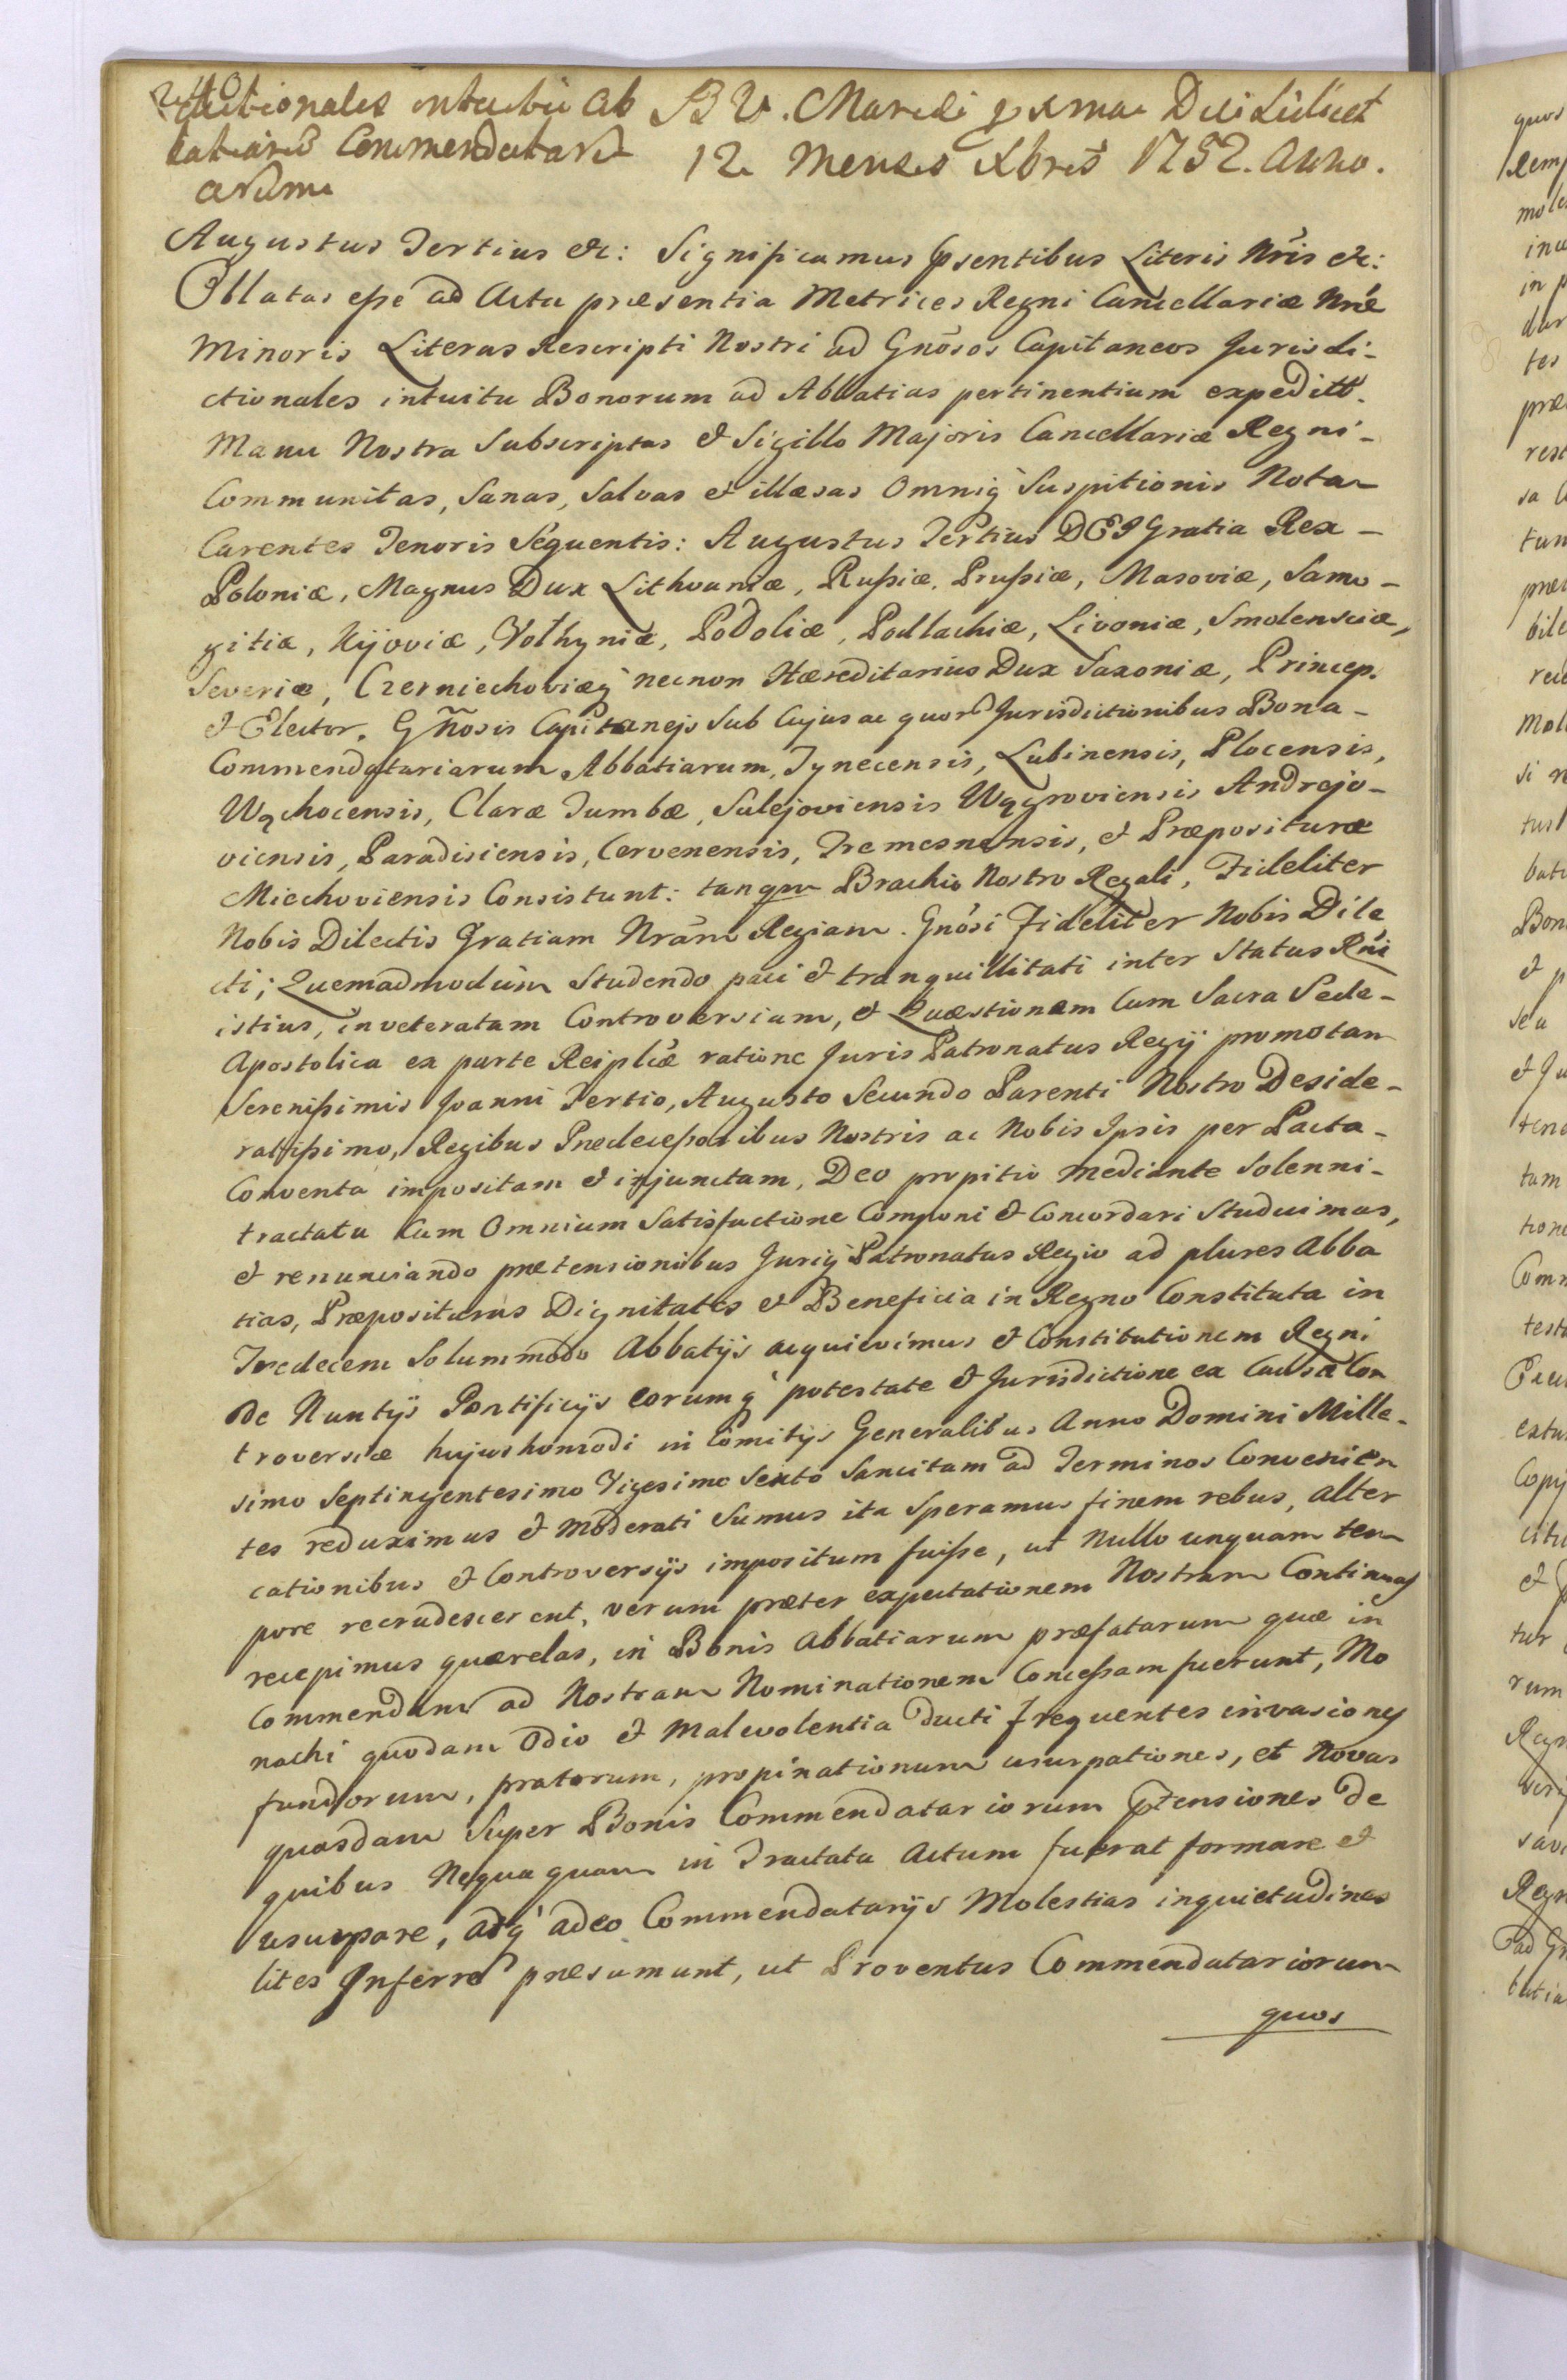 240
ctionales intuitu Ab B V. Mariæ proxima Die Scilicet
batiaru Commendatari 12 Mensis Xbris 1752. Anno.
arum
Augustus Tertius &c: Significamus Pntibus Literis Nris &c:
Oblatas esse ad Acta præsentia Metrices Regni Cancellariæ Nræ
Minoris Literas Rescripti Nostri ad Gnosos Capitaneos Jurisdi-
ctionales intuitu Bonorum ad Abbatias pertinentium expeditt.
Manu Nostra Subscriptas & Sigillo Majoris Cancellariæ Regni-
Communitas, Sanas, Salvas et illæsas Omniq Suspitionis Nota
Carentes Tenoris Sequentis: Augustus Tertius DEI Gratia Rex-
Poloniæ, Magnus Dux Lithvaniæ, Russiæ, Prussiæ, Masoviæ, Samo-
gitiæ, Kijoviæ, Vołhyniæ, Podoliæ, Podlachiæ, Livoniæ, Smolensciæ,
Severiæ, Czerniechoviæq necnon Hæreditarius Dux Saxoniæ, Princep.
& Elector. Gñosis Capitanejs Sub Cujus ac quor Jurisdictionibus Bona-
Commendatariarum Abbatiarum, Tynecensis, Lubinensis, Plocensis,
Wąchocensis, Claræ Tumbæ, Sulejoviensis Wągroviensis Andrejo-
viensis, Paradisiensis, Cervenensis, Tremesnensis, et Præposituræ
Miechoviensis Consistunt: tanqm Brachio Nostro Regali, Fideliter
Nobis Dilectis Gratiam Nram Regiam. Gnosi Fideliter Nobis Dile
cti; Quemadmodum Studendo paci & tranquillitati inter Status Rni
istius, inveteratam Controversiam, & Quæstionem Cum Sacra Sede-
Apostolica ex parte Reiplicæ ratione Juris Patronatus Regij promotam
Serenissimis Joanni Tertio, Augusto Secundo Parenti Nostro Deside-
ratissimo, Regibus Prædecessoribus Nostris ac Nobis Ipsis per Pacta-
Conventa impositam & injunctam, Deo propitio mediante Solenni-
tractatu Cum Omnium Satisfactione Componi & Concordari Studuimus,
et renunciando prætensionibus Juriq Patronatus Regio ad plures Abba
tias, Præposituras Dignitates et Beneficia in Regno Constituta in
Tredecem Solummodo Abbatijs acquievimus & Constitutionem Regni
de Nuntijs Pontificijs eorumq potestate & Jurisdictione ex Causa Con
troversiæ hujushomodi in Comitijs Generalibus Anno Domini Mille-
simo Septingentesimo Vigesimo Sexto Sancitam ad Terminos Convenien
tes reduximus & moderati Sumus ita Speramus finem rebus, alter
cationibus & Controversijs impositum fuisse, ut Nullo unquam tem
pore recrudescerent, verum præter expectationem Nostram Continuas
recepimus quærelas, in Bonis Abbatiarum præfatarum quæ in
Commendam ad Nostram Nominationem Concessam fuerunt, Mo
nachi quodam Odio & Malevolentia ducti frequentes invasiones
fundorum, pratorum, propinationum usurpationes, et Novas
quasdam Super Bonis Commendatariorum Ptensiones de
quibus Nequaquam in Tractatu Actum fuerat formare et
usurpare, atq adeo Commendatarijs Molestias inquietudines
lites Inferre præsumunt, ut Proventus Commendatariorum
quos